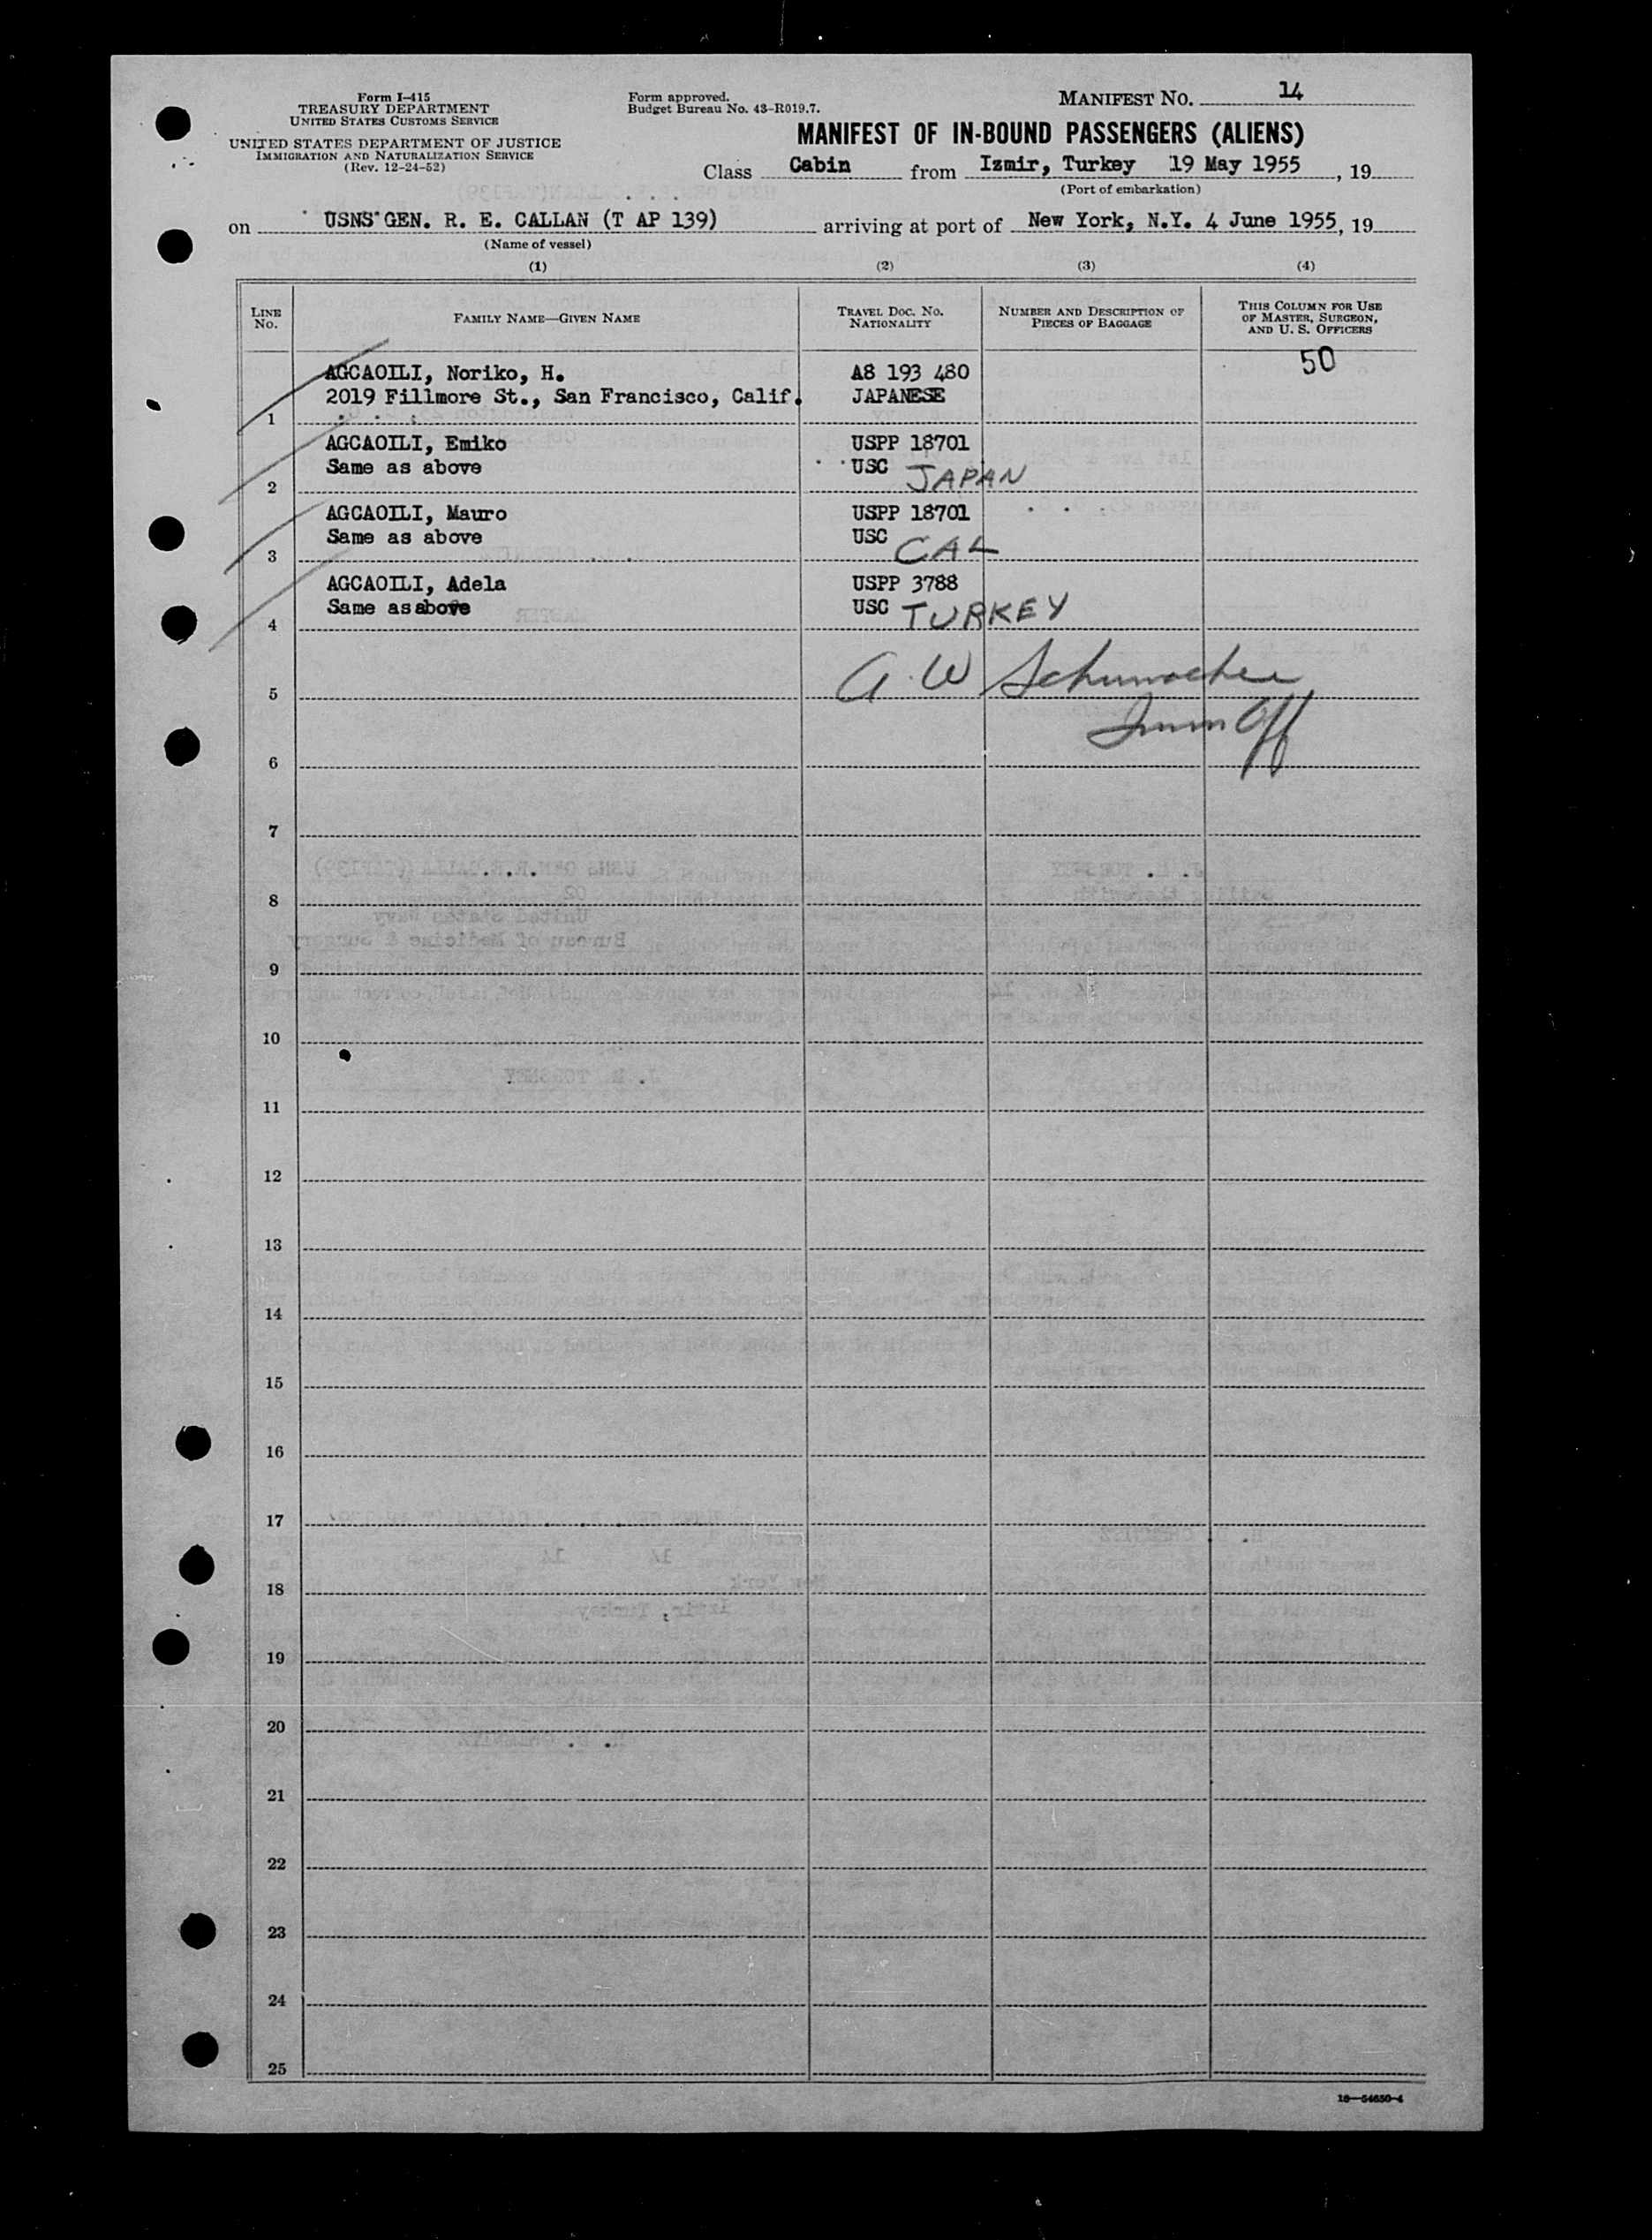 Form I-415
TREASURY DEPARTMENT
UNITED STATES CUSTOMS SERVICE
UNITED STATES DEPARTMENT OF JUSTICE
IMMIGRATION AND NATURALIZATION SERVICE
(Rev. 12-24-52)
Form approved.
Budget Bureau No. 43-R019.7.
MANIFEST NO. 14
MANIFEST OF IN-BOUND PASSENGERS (ALIENS)
Class Cabin from Izmir, Turkey 19 May 1955, 19
(Port of embarkation)
on USNS GEN. R. E. CALLAN (T AP 139) arriving at port of New York, N.Y. 4 June 1955, 19
(Name of vessel)
(1) (2) (3) (4)
LINE NO. FAMILY NAME—GIVEN NAME TRAVEL DOC. NO. NATIONALITY NUMBER AND DESCRIPTION OF PIECES OF BAGGAGE THIS COLUMN FOR USE OF MASTER, SURGEON, AND U. S. OFFICERS
50
AGCAOILI, Noriko, H. A8 193 480
2019 Fillmore St., San Francisco, Calif. JAPANESE
1
AGCAOILI, Emiko USPP 18701
Same as above USC JAPAN
2
AGCAOILI, Mauro USPP 18701
Same as above USC CAL
3
AGCAOILI, Adela USPP 3788
Same as above USC TURKEY
4
A. W Schumacher
5
Imm Off
6
7
8
9
10
11
12
13
14
15
16
17
18
19
20
21
22
23
24
25
16—54650-4